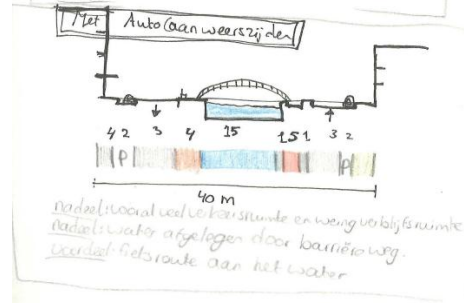 Met Auto (aan weerszijden)
4 2 3 4 15 1.5 1 3 2
P P
40 M
nadeel: vooral veel verkeersruimte en weinig verblijfsruimte
nadeel: water afgelegen door barrière weg.
voordeel: fietsroute aan het water